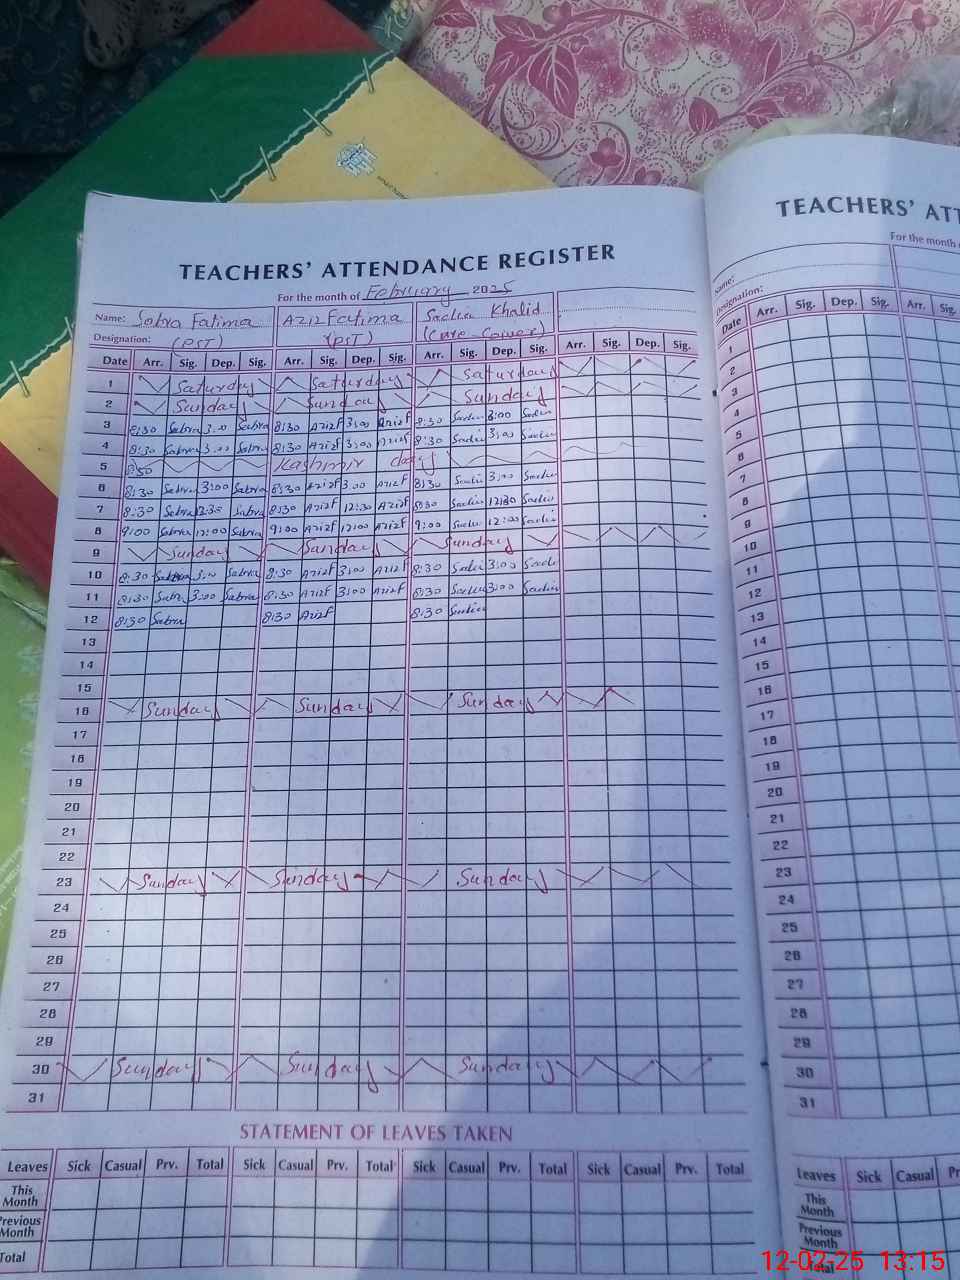 TEACHERS' ATTENDANCE REGISTER
For the month of February 2025
Name: Sobra Fatima Aziz Fatima Sadia Khalid
Designation: (PST) (PST) (Care Giver)
Date Arr. Sig. Dep. Sig. Arr. Sig. Dep. Sig. Arr. Sig. Dep. Sig. Arr. Sig. Dep. Sig.
1 Saturday Saturday Saturday
2 Sunday Sunday Sunday
3 8:30 Sabra 3:00 Sabra 8:30 AzizF 3:00 AzizF 8:30 Sadia 3:00 Sadia
4 8:30 Sabra 3:00 Sabra 8:30 AzizF 3:00 AzizF 8:30 Sadia 3:00 Sadia
5 8:30 Kashmir day
6 8:30 Sabra 3:00 Sabra 8:30 AzizF 3:00 AzizF 8:30 Sadia 3:00 Sadia
7 8:30 Sabra 12:30 Sabra 8:30 AzizF 12:30 AzizF 8:30 Sadia 12:30 Sadia
8 9:00 Sabra 12:00 Sabra 9:00 AzizF 12:00 AzizF 9:00 Sadia 12:00 Sadia
9 Sunday Sunday Sunday
10 8:30 Sabra 3:00 Sabra 8:30 AzizF 3:00 AzizF 8:30 Sadia 3:00 Sadia
11 8:30 Sabra 3:00 Sabra 8:30 AzizF 3:00 AzizF 8:30 Sadia 3:00 Sadia
12 8:30 Sabra 8:30 AzizF 8:30 Sadia
13
14
15
16 Sunday Sunday Sunday
17
18
19
20
21
22
23 Sunday Sunday Sunday
24
25
26
27
28
29
30 Sunday Sunday Sunday
31
STATEMENT OF LEAVES TAKEN
Leaves Sick Casual Prv. Total Sick Casual Prv. Total Sick Casual Prv. Total Sick Casual Prv. Total
This Month
Previous Month
Total
TEACHERS' ATT
For the month
Name:
Designation:
Date Arr. Sig. Dep. Sig. Arr. Sig.
1
2
3
4
5
6
7
8
9
10
11
12
13
14
15
16
17
18
19
20
21
22
23
24
25
26
27
28
29
30
31
Leaves Sick Casual
This Month
Previous Month
Total
12-02-25 13:15